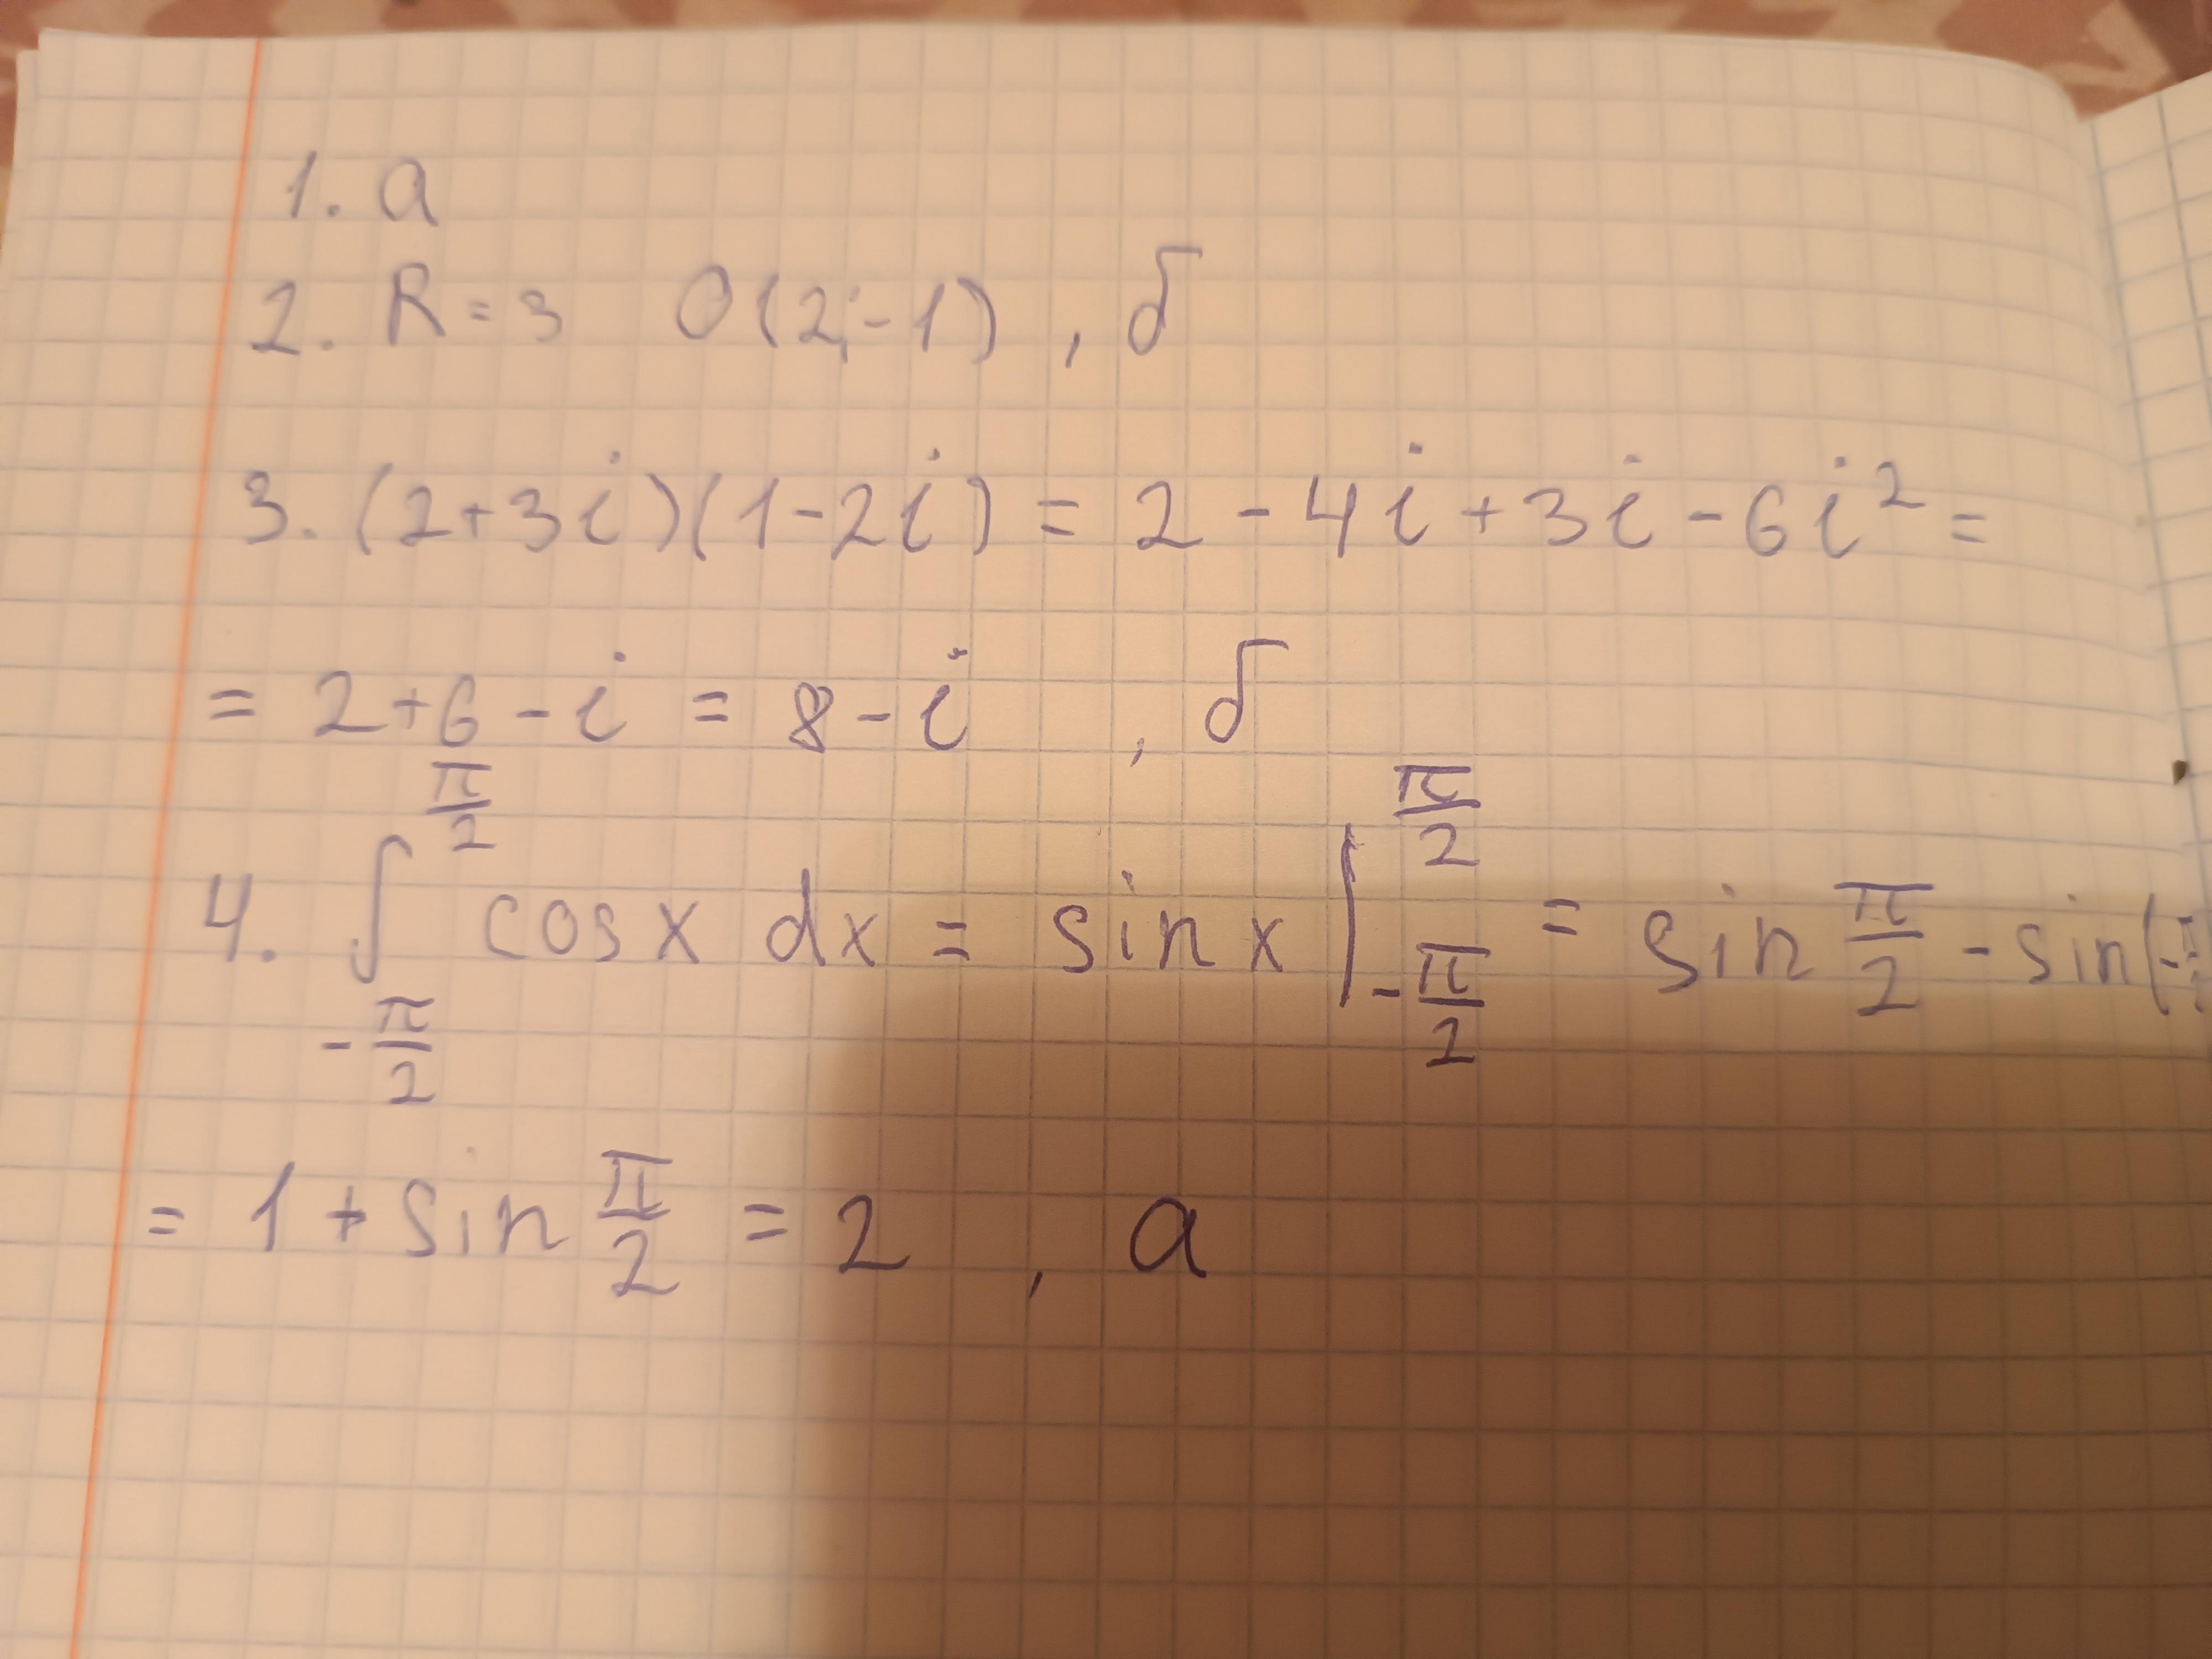 1. а
2. R = 3 O(2;-1) , б
3. (2+3i)(1-2i) = 2 - 4i + 3i - 6i² =
= 2+6 - i = 8 - i , б
4. ∫_{-π/2}^{π/2} cos x dx = sin x |_{-π/2}^{π/2} = sin π/2 - sin(-
= 1 + sin π/2 = 2 , а